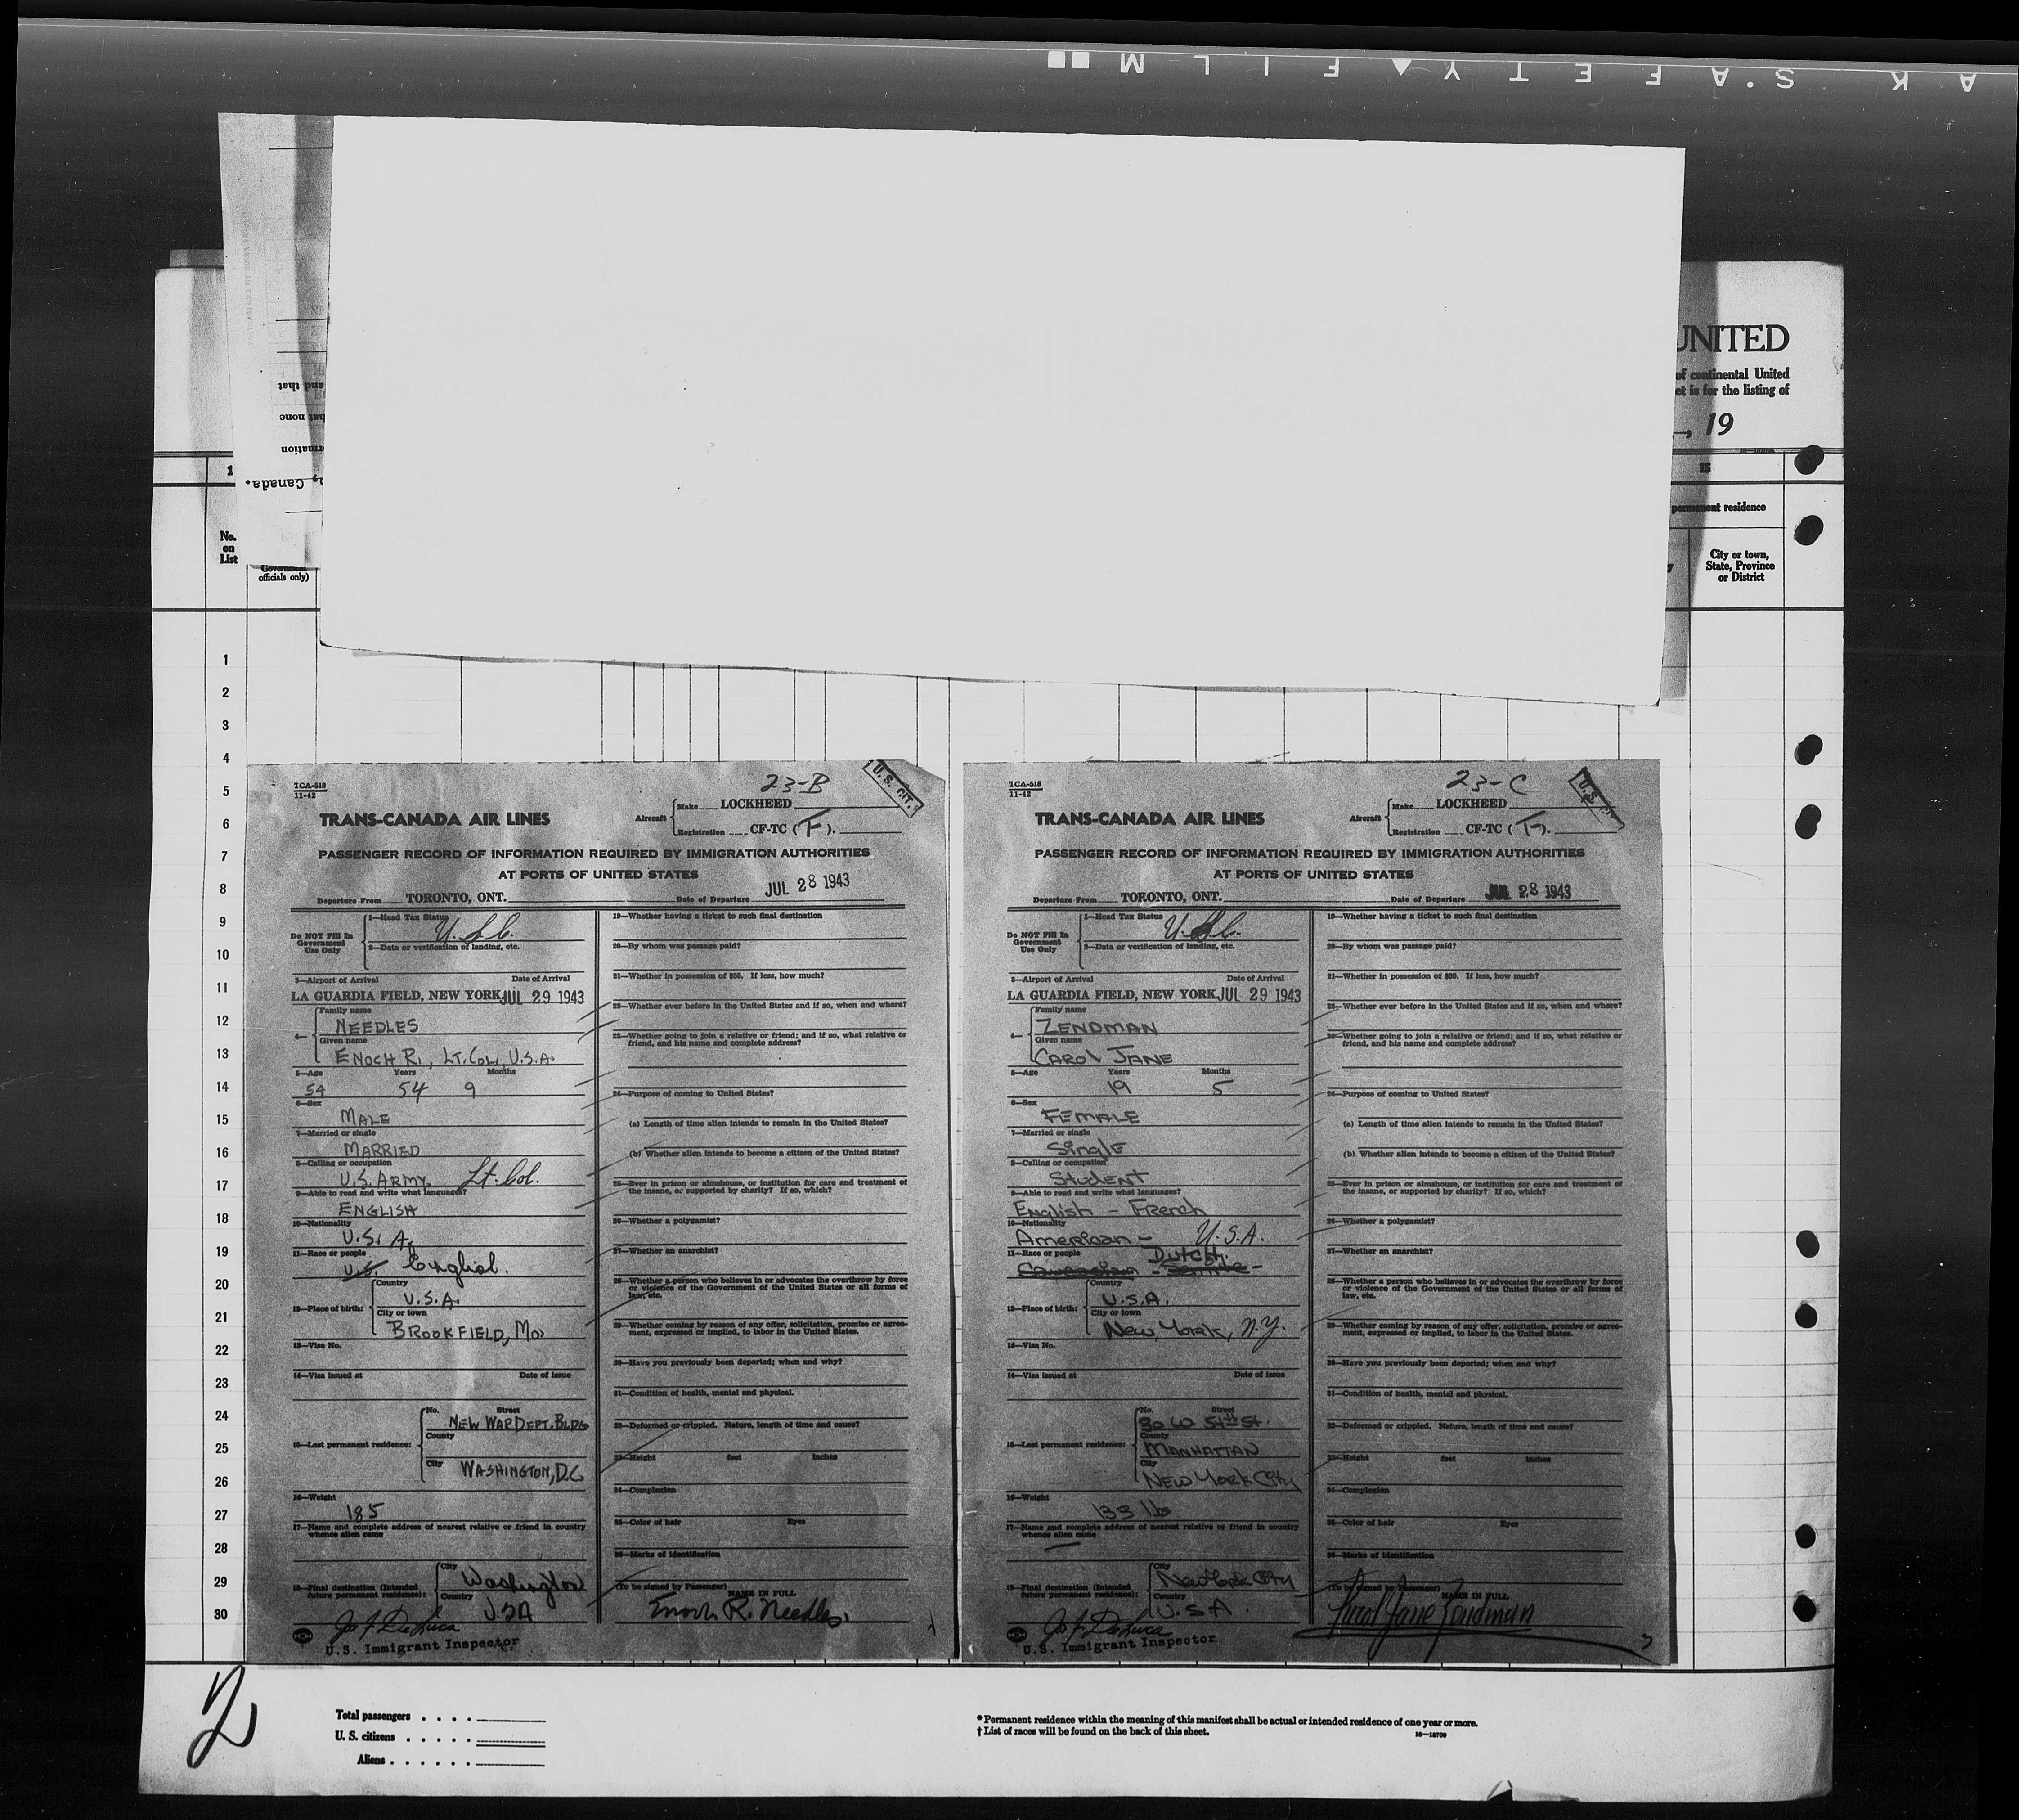 AK S.AFETY FILM
UNITED
of continental United
et is for the listing of
, 19
and that
hat none
rmation
, Canada.
1
15
permanent residence
No.
on
List
Government
officials only)
City or town,
State, Province
or District
1
2
3
4
5
6
7
8
9
10
11
12
13
14
15
16
17
18
19
20
21
22
23
24
25
26
27
28
29
30
TCA-518
11-42
23-B
U. S. CIT.
TRANS-CANADA AIR LINES
Aircraft
Make LOCKHEED
Registration CF-TC (F).
PASSENGER RECORD OF INFORMATION REQUIRED BY IMMIGRATION AUTHORITIES
AT PORTS OF UNITED STATES
Departure From TORONTO, ONT. Date of Departure JUL 28 1943
Do NOT Fill In
Government
Use Only
1—Head Tax Status
U.S.C.
2—Data or verification of landing, etc.
3—Airport of Arrival Date of Arrival
LA GUARDIA FIELD, NEW YORK JUL 29 1943
4— Family name
NEEDLES
Given name
ENOCH R., LT. COL. U.S.A.
5—Age Years Months
54 54 9
6—Sex
MALE
7—Married or single
MARRIED
8—Calling or occupation
U.S. ARMY Lt. Col.
9—Able to read and write what languages?
ENGLISH
10—Nationality
U.S.A.
11—Race or people
U.S. English.
12—Place of birth:
Country
U.S.A.
City or town
BROOKFIELD, MO.
13—Visa No.
14—Visa issued at Date of issue
15—Last permanent residence:
No. Street
NEW WAR DEPT. BLDG
County
City
WASHINGTON, D.C.
16—Weight
185
17—Name and complete address of nearest relative or friend in country
whence alien came
18—Final destination (Intended
future permanent residence):
City
Washington
Country
U.S.A
Jo F DeLuca
U.S. Immigrant Inspector
19—Whether having a ticket to such final destination
20—By whom was passage paid?
21—Whether in possession of $50. If less, how much?
22—Whether ever before in the United States and if so, when and where?
23—Whether going to join a relative or friend; and if so, what relative or
friend, and his name and complete address?
24—Purpose of coming to United States?
(a) Length of time alien intends to remain in the United States?
(b) Whether alien intends to become a citizen of the United States?
25—Ever in prison or almshouse, or institution for care and treatment of
the insane, or supported by charity? If so, which?
26—Whether a polygamist?
27—Whether an anarchist?
28—Whether a person who believes in or advocates the overthrow by force
or violence of the Government of the United States or all forms of
law, etc.
29—Whether coming by reason of any offer, solicitation, promise or agree-
ment, expressed or implied, to labor in the United States.
30—Have you previously been deported; when and why?
31—Condition of health, mental and physical.
32—Deformed or crippled. Nature, length of time and cause?
33—Height feet inches
34—Complexion
35—Color of hair Eyes
36—Marks of identification
(To be signed by Passenger) NAME IN FULL
Enoch R. Needles
TCA-518
11-42
23-C
U.S. CIT.
TRANS-CANADA AIR LINES
Aircraft
Make LOCKHEED
Registration CF-TC (T).
PASSENGER RECORD OF INFORMATION REQUIRED BY IMMIGRATION AUTHORITIES
AT PORTS OF UNITED STATES
Departure From TORONTO, ONT. Date of Departure JUL 28 1943
Do NOT Fill In
Government
Use Only
1—Head Tax Status
U.S.C.
2—Data or verification of landing, etc.
3—Airport of Arrival Date of Arrival
LA GUARDIA FIELD, NEW YORK JUL 29 1943
4— Family name
ZENDMAN
Given name
CAROL JANE
5—Age Years Months
19 5
6—Sex
FEMALE
7—Married or single
Single
8—Calling or occupation
Student
9—Able to read and write what languages?
English - French
10—Nationality
American - U.S.A.
11—Race or people Dutch.
12—Place of birth:
Country
U.S.A.
City or town
New York, N.Y.
13—Visa No.
14—Visa issued at Date of issue
15—Last permanent residence:
No. Street
30 W 54th St.
County
MANHATTAN
City
NEW YORK City
16—Weight
133 lb
17—Name and complete address of nearest relative or friend in country
whence alien came
18—Final destination (Intended
future permanent residence):
City
New York City
Country
U.S.A.
Jo F DeLuca
U.S. Immigrant Inspector
19—Whether having a ticket to such final destination
20—By whom was passage paid?
21—Whether in possession of $50. If less, how much?
22—Whether ever before in the United States and if so, when and where?
23—Whether going to join a relative or friend; and if so, what relative or
friend, and his name and complete address?
24—Purpose of coming to United States?
(a) Length of time alien intends to remain in the United States?
(b) Whether alien intends to become a citizen of the United States?
25—Ever in prison or almshouse, or institution for care and treatment of
the insane, or supported by charity? If so, which?
26—Whether a polygamist?
27—Whether an anarchist?
28—Whether a person who believes in or advocates the overthrow by force
or violence of the Government of the United States or all forms of
law, etc.
29—Whether coming by reason of any offer, solicitation, promise or agree-
ment, expressed or implied, to labor in the United States.
30—Have you previously been deported; when and why?
31—Condition of health, mental and physical.
32—Deformed or crippled. Nature, length of time and cause?
33—Height feet inches
34—Complexion
35—Color of hair Eyes
36—Marks of identification
(To be signed by Passenger) NAME IN FULL
Carol Jane Zendman
2
Total passengers
U. S. citizens
Aliens
* Permanent residence within the meaning of this manifest shall be actual or intended residence of one year or more.
† List of races will be found on the back of this sheet.
16—18709